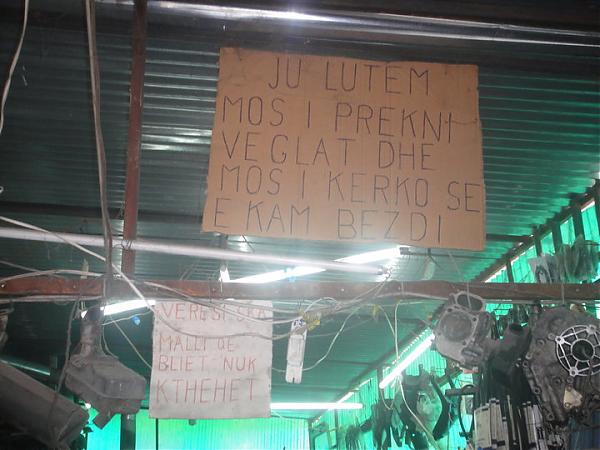 JU LUTEM
MOS I PREKNI
VEGLAT DHE
MOS I KERKO SE
E KAM BEZDI
VERESI SKA
MALLI QE
BLIET NUK
KTHEHET